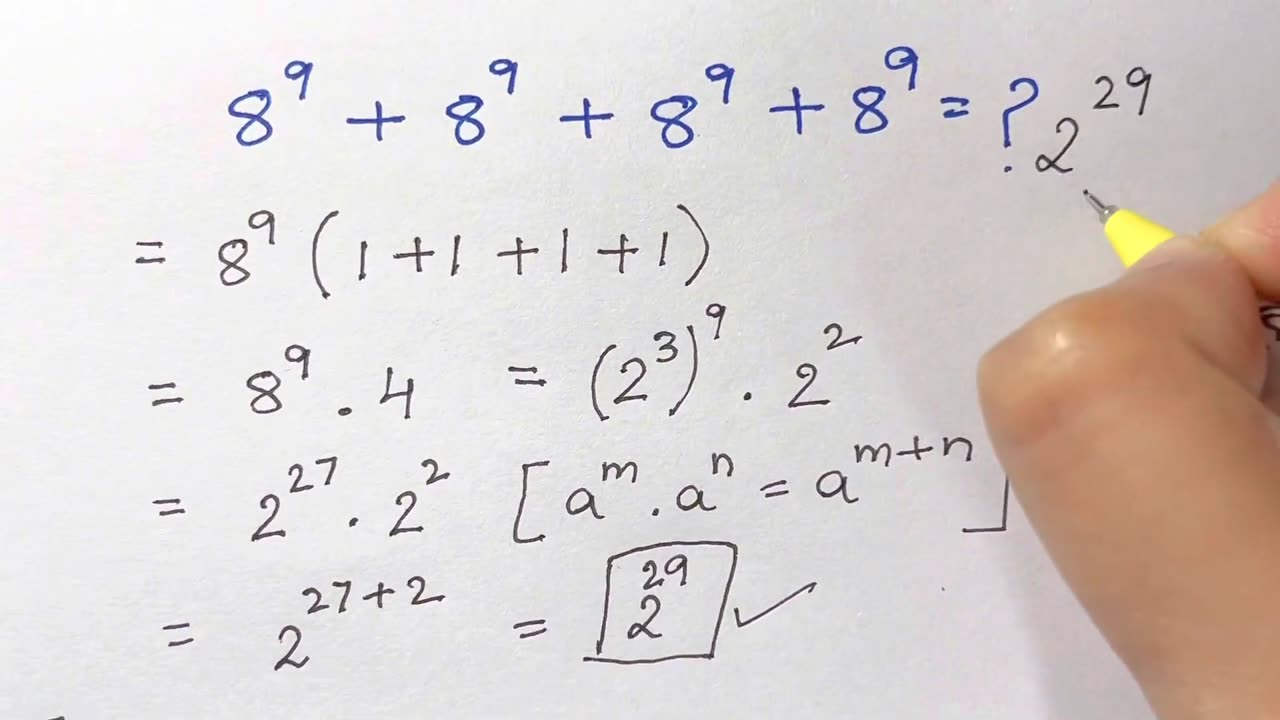 8⁹ + 8⁹ + 8⁹ + 8⁹ = ? 2²⁹
= 8⁹ (1 + 1 + 1 + 1)
= 8⁹ . 4 = (2³)⁹ . 2²
= 2²⁷ . 2² [aᵐ . aⁿ = aᵐ⁺ⁿ]
= 2²⁷⁺² = 2²⁹ ✓